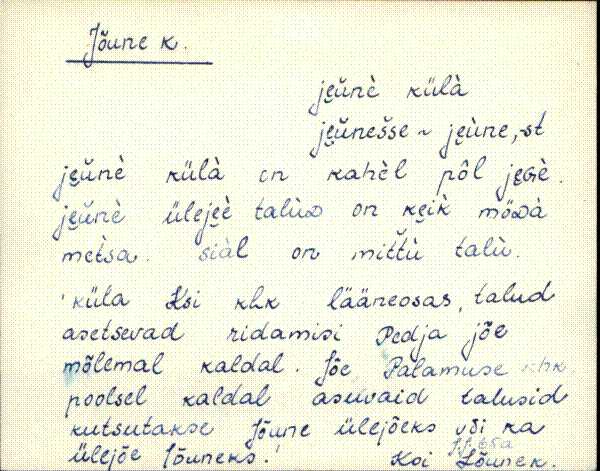 Jõune k.
je̮ŭnè külà
je̮ŭnešse ~ je̮ùne, -st
je̮ŭnè külà on kahèl pôl je̮Gè.
je̮ŭnè ülejeè talùD on ke̮ìk möDà
metsa. siàl on mittŭ talù.
'küla Ksi khk lääneosas, talud
asetsevad ridamisi Pedja jõe
mõlemal kaldal. Jõe Palamuse khk
poolsel kaldal asuvaid talusid
kutsutakse Jõune ülejõeks või ka
ülejõe Jõuneks.'
Ksi Lõunek.